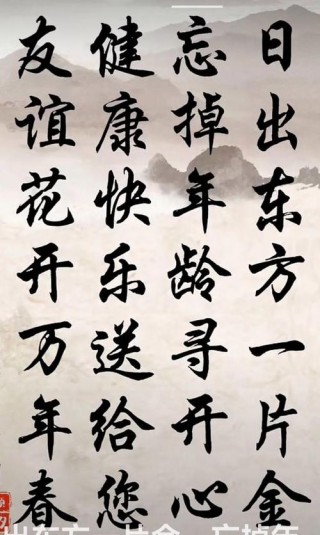 日出东方一片金
忘掉年龄寻开心
健康快乐送给您
友谊花开万年春
出东方一片金，忘掉年